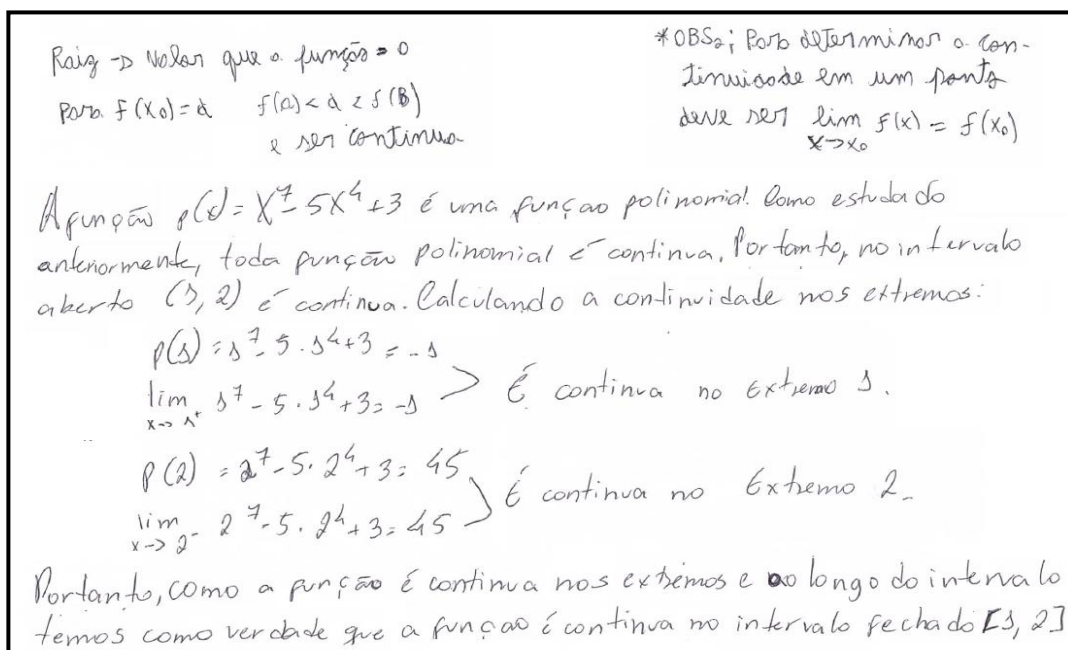 Raiz -> Valor que a função = 0
Para f(x₀) = d f(a) < d < f(B)
e ser continua
*OBS₂: Para determinar a con-
tinuidade em um ponto
deve ser lim x->x₀ f(x) = f(x₀)
A função p(x) = x⁷ - 5x⁴ + 3 é uma função polinomial. Como estudado
anteriormente, toda função polinomial é continua. Portanto, no intervalo
aberto (1, 2) é continua. Calculando a continuidade nos extremos:
p(1) = 1⁷ - 5 . 1⁴ + 3 = -1
lim x->1⁺ 1⁷ - 5 . 1⁴ + 3 = -1 > É continua no Extremo 1.
P(2) = 2⁷ - 5 . 2⁴ + 3 = 45
lim x->2⁻ 2⁷ - 5 . 2⁴ + 3 = 45 > É continua no Extremo 2.
Portanto, como a função é continua nos extremos e ao longo do intervalo
temos como verdade que a função é continua no intervalo fechado [1, 2]